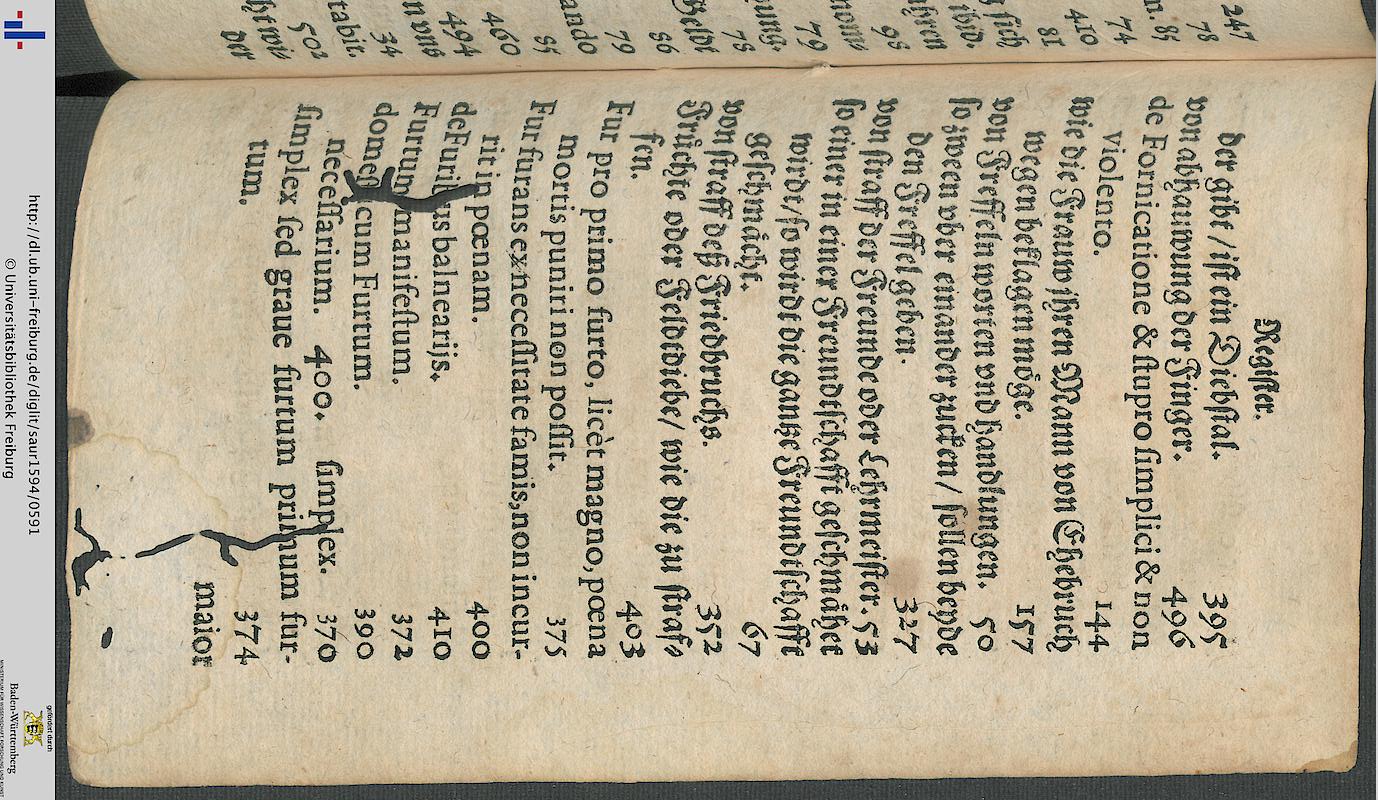 247
78
n. 85
74
410
81
g sich
ibid.
ahren
98
nomi
79
zung.
78
Geldt
86
79
ando
85
460
494
n vns
34
tabit.
502
der
Register.
der gibt / ist ein Diebstal. 395
von abhauwung der Finger. 496
de Fornicatione & stupro simplici & non
violento. 144
wie die Frauw jhren Mann von Ehebruch
wegen beklagen möge. 157
von Freffeln worten vnd handlungen. 50
so zween vber einander zucken / sollen beyde
den Freffel geben. 327
von straff der Freunde oder Lehrmeister. 53
so einer in einer Freundtschafft geschmähet
wirdt / so wirdt die gantze Freundtschafft
geschmächt. 67
von straff deß Friedbruchs. 352
Früchte oder Feldtdiebe / wie die zu straf⸗
fen. 403
Fur pro primo furto, licèt magno, pœna
mortis puniri non possit. 375
Fur furans ex necessitate famis, non incur-
rit in pœnam. 400
de Furibus balnearijs. 410
Furtum manifestum. 372
domest cum Furtum. 390
necessarium. 400. simplex. 370
simplex sed graue furtum primum fur-
tum. 374
maior
http://dl.ub.uni-freiburg.de/diglit/saur1594/0591
© Universitätsbibliothek Freiburg
gefördert durch
Baden-Württemberg
MINISTERIUM FÜR WISSENSCHAFT, FORSCHUNG UND KUNST